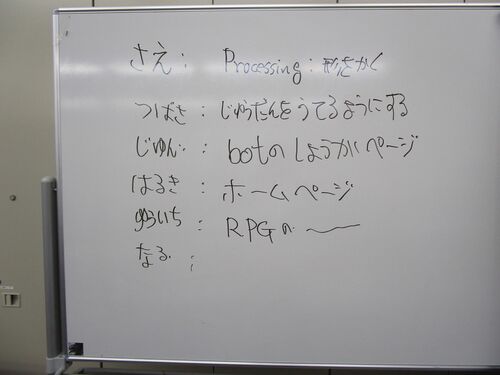 さえ: Processing: 形をかく
つばさ: じゅうだんをうてるようにする
じゅん: botのしょうかいページ
はるき: ホームページ
いち: RPGの 〜
なる: